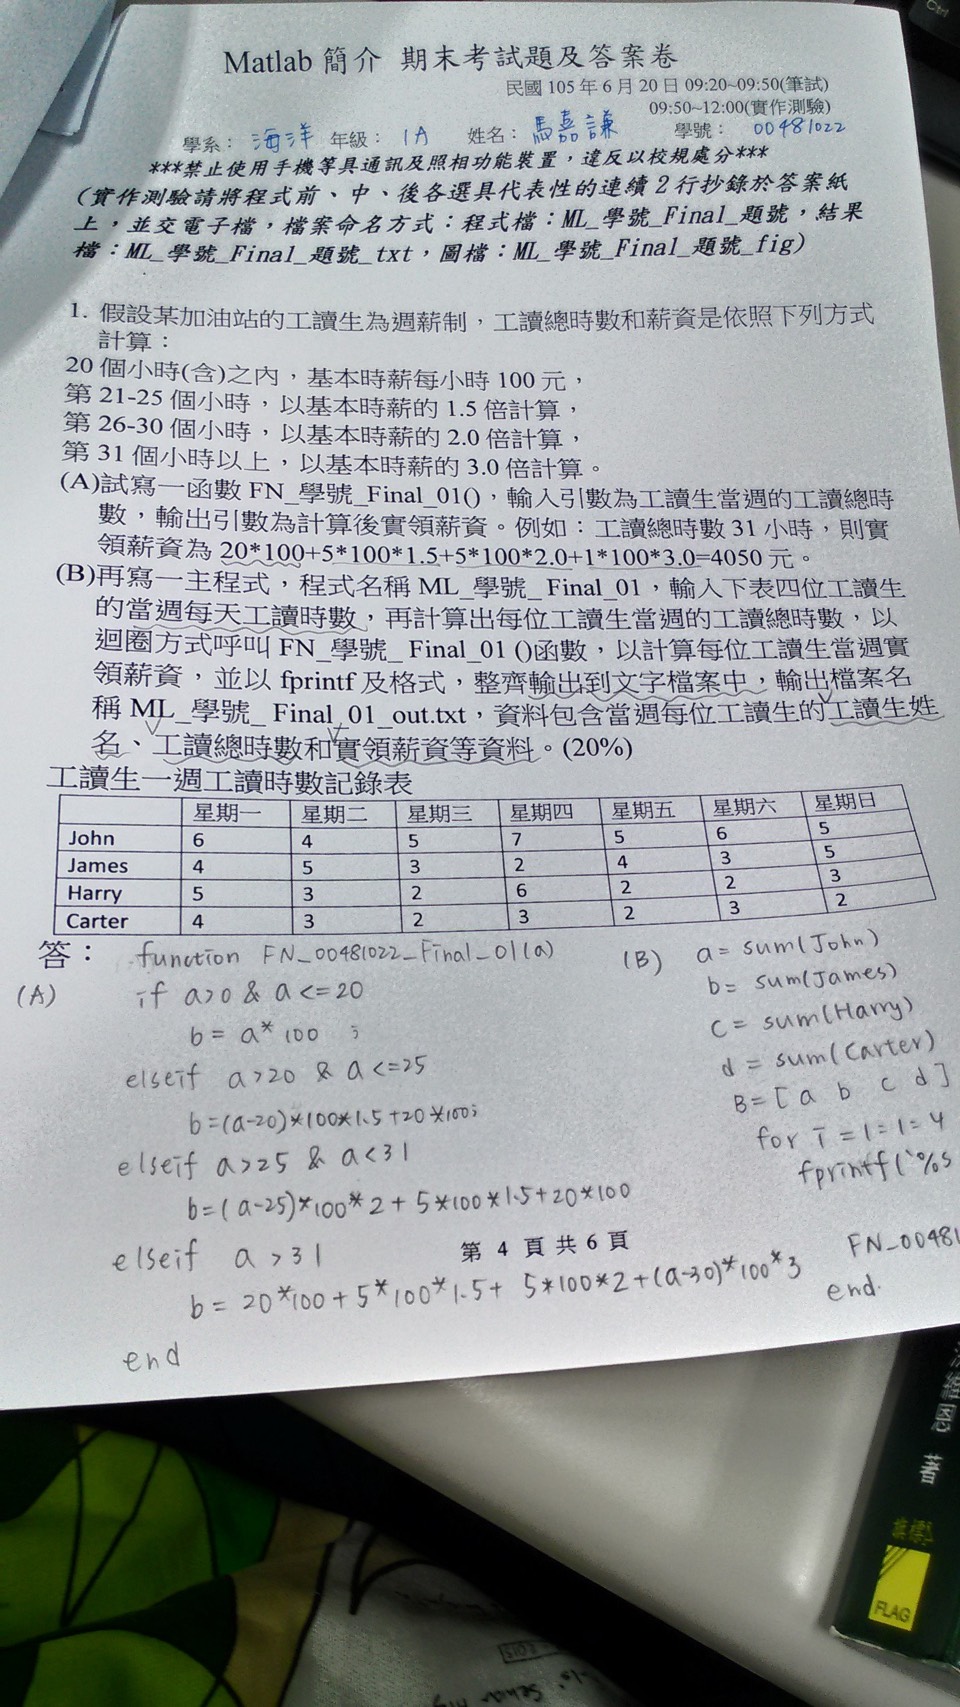 Matlab 簡介 期末考試題及答案卷
民國 105 年 6 月 20 日 09:20~09:50(筆試)
09:50~12:00(實作測驗)
學系： 海洋 年級： 1A 姓名： 馬嘉謙 學號： 00481022
***禁止使用手機等具通訊及照相功能裝置，違反以校規處分***
(實作測驗請將程式前、中、後各選具代表性的連續 2 行抄錄於答案紙
上，並交電子檔，檔案命名方式：程式檔：ML_學號_Final_題號，結果
檔：ML_學號_Final_題號_txt，圖檔：ML_學號_Final_題號_fig)
1. 假設某加油站的工讀生為週薪制，工讀總時數和薪資是依照下列方式
計算：
20 個小時(含)之內，基本時薪每小時 100 元，
第 21-25 個小時，以基本時薪的 1.5 倍計算，
第 26-30 個小時，以基本時薪的 2.0 倍計算，
第 31 個小時以上，以基本時薪的 3.0 倍計算。
(A)試寫一函數 FN_學號_Final_01()，輸入引數為工讀生當週的工讀總時
數，輸出引數為計算後實領薪資。例如：工讀總時數 31 小時，則實
領薪資為 20*100+5*100*1.5+5*100*2.0+1*100*3.0=4050 元。
(B)再寫一主程式，程式名稱 ML_學號_ Final_01，輸入下表四位工讀生
的當週每天工讀時數，再計算出每位工讀生當週的工讀總時數，以
迴圈方式呼叫 FN_學號_ Final_01 ()函數，以計算每位工讀生當週實
領薪資，並以 fprintf 及格式，整齊輸出到文字檔案中，輸出檔案名
稱 ML_學號_ Final_01_out.txt，資料包含當週每位工讀生的工讀生姓
名、工讀總時數和實領薪資等資料。(20%)
工讀生一週工讀時數記錄表
星期一 星期二 星期三 星期四 星期五 星期六 星期日
John 6 4 5 7 5 6 5
James 4 5 3 2 4 3 5
Harry 5 3 2 6 2 2 3
Carter 4 3 2 3 2 3 2
答：
(A)
function FN_00481022_Final_01(a)
if a>0 & a<=20
b = a*100 ;
elseif a>20 & a<=25
b=(a-20)*100*1.5+20*100;
elseif a>25 & a<31
b=(a-25)*100*2+5*100*1.5+20*100
elseif a>31
b= 20*100+5*100*1.5+ 5*100*2+(a-30)*100*3
end
(B)
a= sum(John)
b= sum(James)
c= sum(Harry)
d= sum(Carter)
B=[a b c d]
for i=1=1=4
fprintf('%s
FN_00481
end.
第 4 頁 共 6 頁
著
旗標
FLAG